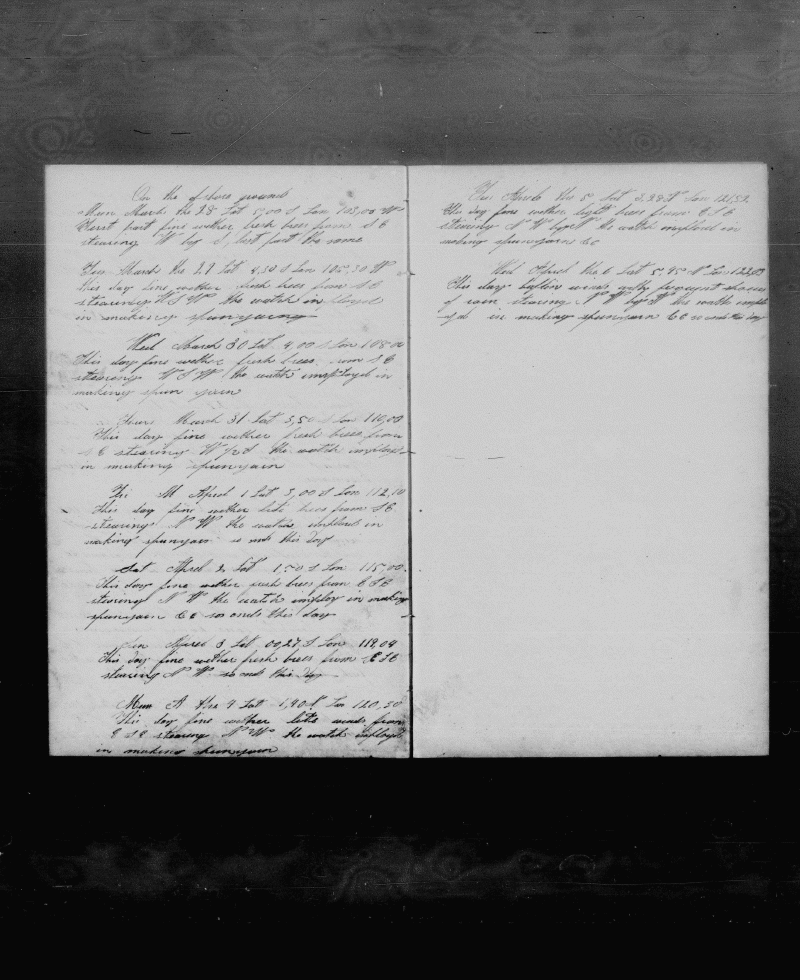 On the of shore ground
Mon March the 28 Lat 5,00 S Lon 103,00 W
First part fine wether fresh brees from S E
stearing W by S, last part the same
Tus March the 29 Lat 4,50 S Lon 105,30 W
this day fine wether fresh brees from S E
stearing W S W the watch imployd
in making spunyarn
Wed March 30 Lat 4,00 S Lon 108,00
This day fine wether fresh brees from S E
stearing W S W the watch imployd in
making spun yarn
Thurs March 31 Lat 3,50 S Lon 110,00
This day fine wether fresh brees from
S E stearing W the watch employ
in making spunyarn
Fri April 1 Lat 3,00 S Lon 112,10
this day fine wether brees from S E
stearing N W the watch in
making spunyarn so ends this day
Sat April 2 Lat 1,50 S Lon 115,00
This day fine wether fresh brees from E S E
stearing N W the watch employ in making
spunyarn &c so ends this day
Sun April 3 Lat 00,27 S Lon 118,04
This day fine wether fresh brees from E S E
stearing N W so ends this day
Mon A the 4 Lat 1,40 N Lon 120,50
This day fine wether lite winds from
E S E stearing N W the watch imployd
in making spunyarn
Tus April the 5 Lat 3,28 N Lon 121,52
this day fine wether light brees from E S E
stearing N W by N the watch imployd in
making spunyarn &c
Wed April the 6 Lat 5,45 N Lon 122,03
This day winds frequent
of rain stearing N W by N the watch employ
yd in making spunyarn &c so ends this day